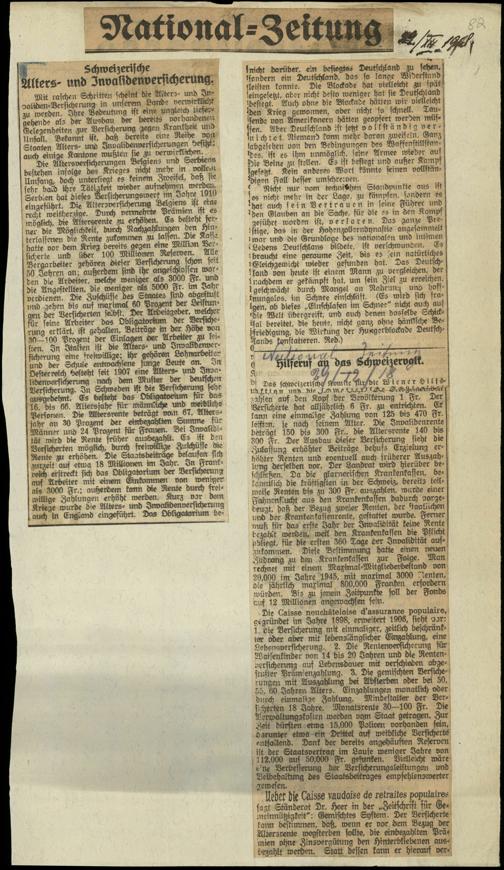 National=Zeitung
82
Schweizerische
Alters- und Invalidenversicherung.
Mit raschen Schritten scheint die Alters- und In-
validen-Versicherung in unserem Lande verwirklicht
zu werden. Ihre Bedeutung ist eine ungleich tiefer-
gehende als der Ausbau der bereits vorhandenen
Gelegenheiten zur Versicherung gegen Krankheit und
Unfall. Bekannt ist, daß bereits eine Reihe von
Staaten Alters- und Invalidenversicherungen besitzt;
auch einige Kantone wußten sie zu verwirklichen.
Die Altersversicherungen Belgiens und Serbiens
bestehen infolge des Krieges nicht mehr in vollem
Umfang, doch unterliegt es keinem Zweifel, daß sie
sehr bald ihre Tätigkeit wieder aufnehmen werden.
Serbien hat dieses Versicherungswerk im Jahre 1910
eingeführt. Die Altersversicherung Belgiens ist eine
recht weitherzige. Durch vermehrte Prämien ist es
möglich, die Altersrente zu erhöhen. Es besteht fer-
ner die Möglichkeit, durch Nachzahlungen den Hin-
terlassenen die Rente zukommen zu lassen. Die Kasse
hatte vor dem Krieg bereits gegen eine Million Ver-
sicherte und über 100 Millionen Reserven. Alle
Bergarbeiter gehören dieser Versicherung schon seit
50 Jahren an; außerdem sind ihr angeschlossen wor-
den die Arbeiter, welche weniger als 3000 Fr. und
die Angestellten, die weniger als 5000 Fr. im Jahr
verdienen. Die Zuschüsse des Staates sind abgestuft
und gehen bis auf maximal 60 Prozent der Leistun-
gen der Versicherten selbst. Der Arbeitgeber, welcher
für seine Arbeiter das Obligatorium der Versiche-
rung erklärt, ist gehalten, Beiträge in der Höhe von
30—100 Prozent der Einlagen der Arbeiter zu lei-
sten. In Italien ist die Alters- und Invalidenversiche-
rung eine freiwillige; ihr gehören Lohnarbeiter
und der Schule entwachsene junge Leute an. In
Oesterreich besteht seit 1907 eine Alters- und Inva-
lidenversicherung nach dem Muster der deutschen
Versicherung. In Schweden ist die Versicherung sehr
ausgedehnt. Es besteht das Obligatorium für das
16. bis 66. Altersjahr für männliche und weibliche
Personen. Die Altersrente beträgt vom 67. Alters-
jahr an 30 Prozent der einbezahlten Summe für
Männer und 24 Prozent für Frauen. Bei Invalidi-
tät wird die Rente früher ausbezahlt. Es ist den
Versicherten möglich, durch freiwillige Zuschüsse die
Rente zu erhöhen. Die Staatsbeiträge belaufen sich
zurzeit auf etwa 18 Millionen im Jahr. In Frank-
reich erstreckt sich das Obligatorium der Versicherung
auf Arbeiter mit einem Einkommen von weniger
als 3000 Fr.; außerdem kann die Rente durch frei-
willige Zahlungen erhöht werden. Kurz vor dem
Kriege wurde die Alters- und Invalidenversicherung
auch in England eingeführt. Das Obligatorium be-
nicht darüber, ein besiegtes Deutschland zu sehen,
sondern ein Deutschland, das so lange Widerstand
leisten konnte. Die Blockade hat vielleicht zu spät
eingesetzt, aber nicht desto weniger hat sie Deutschland
besiegt. Auch ohne die Blockade hätten wir vielleicht
den Krieg gewonnen, aber nicht so schnell. Tau-
sende von Amerikanern hätten geopfert werden müs-
sen. Aber Deutschland ist jetzt vollständig ver-
nichtet. Niemand kann mehr daran zweifeln. Ganz
abgesehen von den Bedingungen des Waffenstillstan-
des, ist es ihm unmöglich, eine Armee wieder auf
die Beine zu stellen. Es ist besiegt und außer Kampf
gesetzt. Kein anderes Wort könnte seinen vollstän-
digen Fall besser umschreiben.
Nicht nur vom technischen Standpunkte aus ist
es nicht mehr in der Lage, zu kämpfen, sondern es
hat auch sein Vertrauen in seine Führer und
den Glauben an die Sache, für die es in den Kampf
geführt worden ist, verloren. Das ganze Pre-
stige, das in der Hohenzollerndynastie angesammelt
war und die Grundlage des nationalen und intimen
Lebens Deutschlans bildete, ist verschwunden. Es
braucht eine geraume Zeit, bis es sein natürliches
Gleichgewicht wieder gefunden hat. Das Deutsch-
land von heute ist einem Mann zu vergleichen, der
nachdem er gekämpft hat, um sein Ziel zu erreichen,
geschwächt durch Mangel an Nahrung und hoff-
nungslos, im Schnee einschläft. (Es wird sich fra-
gen, ob dieses „Einschlafen im Schnee“ nicht auch auf
die Welt übergreift, und ob auch denen dasselbe Schick-
sal bereitet, die heute, nicht ganz ohne häm­ische Be-
friedigung, die Wirkung der Hungerblockade Deutsch-
lands konstatieren. Red.)
National Zeitung
Hilferuf an das Schweizervolk.
Das schweizerische Komite für die Wiener Hilfs-
auf den Kopf der Bevölkerung 1 Fr. Der
Versicherte hat alljährlich 6 Fr. zu entrichten. Er
kann eine einmalige Zahlung von 125 bis 470 Fr.
leisten, je nach seinem Alter. Die Invalidenrente
beträgt 150 bis 300 Fr., die Altersrente 140 bis
300 Fr. Der Ausbau dieser Versicherung sieht die
Zulassung erhöhter Beiträge behufs Erzielung er-
höhter Renten und eventuell auch früherer Auszah-
lung derselben vor. Der Landrat wird hierüber be-
schließen. Da die glarnerischen Krankenkassen, be-
kanntlich die kräftigsten in der Schweiz, bereits teil-
weise Renten bis zu 300 Fr. auszahlen, wurde einer
Fahnenflucht aus den Krankenkassen dadurch vorge-
beugt, daß der Bezug zweier Renten, der staatlichen
und der Krankenkassenrente, gestattet wurde. Ferner
muß für das erste Jahr der Invalidität keine Rente
bezahlt werden, weil den Krankenkassen die Pflicht
obliegt, für die ersten 360 Tage der Invalidität auf-
zukommen. Diese Bestimmung hatte einen neuen
Zudrang zu den Krankenkassen zur Folge. Man
rechnet mit einem Maximal-Mitgliederbestand von
20,000 im Jahre 1945, mit maximal 3000 Renten,
die jährlich maximal 800,000 Franken erfordern
würden. Bis zu jenem Zeitpunkte soll der Fonds
auf 12 Millionen angewachsen sein.
Die Caisse neuchâteloise d'assurance populaire,
gegründet im Jahre 1898, erweitert 1906, sieht vor:
1. die Versicherung mit einmaliger, zeitlich beschränk-
ter oder aber mit lebenslänglicher Einzahlung, eine
Lebensversicherung. 2. Die Rentenversicherung für
Waisenkinder von 14 bis 20 Jahren und die Renten-
versicherung auf Lebensdauer mit verschieden abge-
stufter Prämienzahlung. 3. Die gemischten Versiche-
rungen mit Auszahlung bei Absterben oder bei 50,
55, 60 Jahren Alters. Einzahlungen monatlich oder
durch einmalige Zahlung. Mindestalter der Ver-
sicherten 18 Jahre. Monatsrente 30—100 Fr. Die
Verwaltungskosten werden vom Staat getragen. Zur
Zeit dürften etwa 15,000 Policen vorhanden sein,
darunter etwa ein Drittel auf weibliche Versicherte
entfallend. Dank der bereits angehäuften Reserven
ist der Staatsvertrag im Laufe weniger Jahre von
112,000 auf 50,000 Fr. gesunken. Vielleicht wäre
eine Verbesserung der Versicherungsleistungen und
Beibehaltung des Staatsbeitrages empfehlenswerter
gewesen.
Ueber die Caisse vaudoise de retraites populaires
sagt Ständerat Dr. Heer in der „Zeitschrift für Ge-
meinnützigkeit“: Gemischtes System. Der Versicherte
kann bestimmen, daß, wenn er vor dem Bezug der
Altersrente wegsterben sollte, die einbezahlten Prä-
mien ohne Zinsvergütung den Hinterbliebenen aus-
bezahlt werden. Statt dessen kann er hierauf ver-